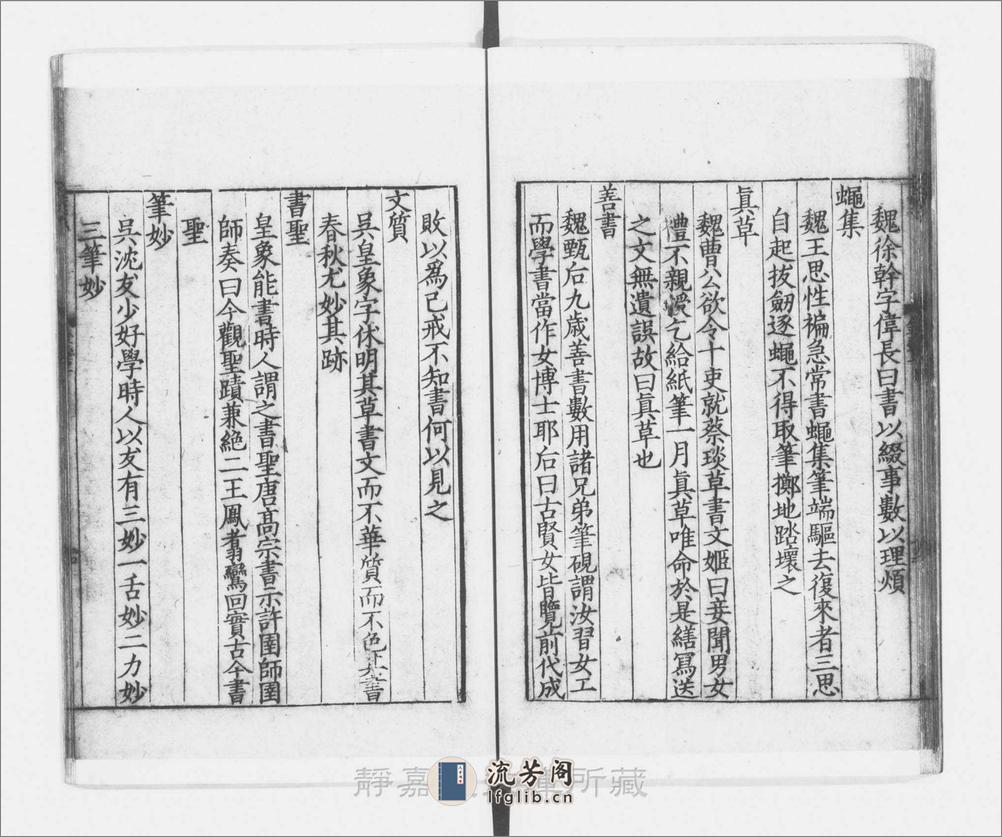 魏徐幹字偉長曰書以綴事數以理煩
蠅集
魏王思性褊急常書蠅集筆端驅去復來者三思
自起拔劒逐蠅不得取筆擲地踏壞之
眞草
魏曹公欲令十吏就蔡琰草書文姬曰妾聞男女
禮不親授乞給紙筆一月眞草唯命於是繕寫送
之文無遺誤故曰眞草也
善書
魏甄后九歲善書數用諸兄弟筆硯謂汝習女工
而學書當作女博士耶后曰古賢女皆覽前代成
敗以為己戒不知書何以見之
文質
吳皇象字休明其草書文而不華質而不色其書
春秋尤妙其跡
書聖
皇象能書時人謂之書聖唐髙宗書示許圉師圉
師奏曰今觀聖蹟兼絶二王鳳翥鸞回實古今書
聖
筆妙
吳沈友少好學時人以友有三妙一舌妙二力妙
三筆妙
靜嘉 所藏
流芳阁
lfglib.cn